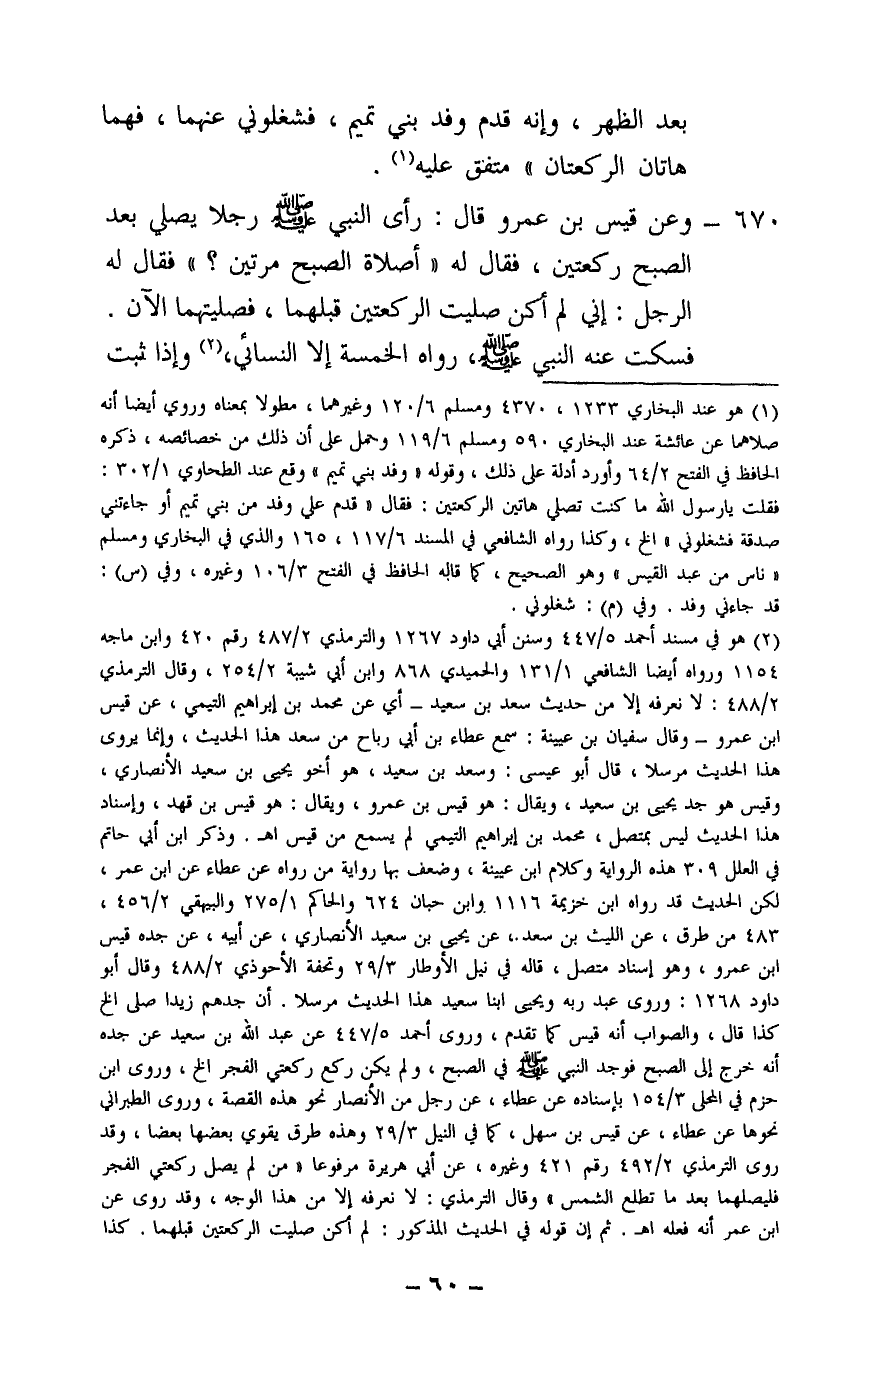 بعد الظهر ، وإنه قدم وفد بني تميم ، فشغلوني عنهما ، فهما
هاتان الركعتان » متفق عليه(١) .
٦٧٠ – وعن قيس بن عمرو قال : رأى النبي ﷺ رجلا يصلي بعد
الصبح ركعتين ، فقال له « أصلاة الصبح مرتين ؟ » فقال له
الرجل : إني لم أكن صليت الركعتين قبلهما ، فصليتهما الآن .
فسكت عنه النبي ﷺ، رواه الخمسة إلا النسائي،(٢) وإذا ثبت
(١) هو عند البخاري ١٢٣٣ ، ٤٣٧٠ ومسلم ١٢٠/٦ وغيرهما ، مطولا بمعناه وروي أيضا أنه
صلاهما عن عائشة عند البخاري ٥٩٠ ومسلم ١١٩/٦ وحمل على أن ذلك من خصائصه ، ذكره
الحافظ في الفتح ٦٤/٢ وأورد أدلة على ذلك ، وقوله « وفد بني تميم » وقع عند الطحاوي ٣٠٢/١ :
فقلت يارسول الله ما كنت تصلي هاتين الركعتين : فقال « قدم علي وفد من بني تميم أو جاءتني
صدقة فشغلوني » الخ ، وكذا رواه الشافعي في المسند ١١٧/٦ ، ١٦٥ والذي في البخاري ومسلم
« ناس من عبد القيس » وهو الصحيح ، كما قاله الحافظ في الفتح ١٠٦/٣ وغيره ، وفي (س) :
قد جاءني وفد . وفي (م) : شغلوني .
(٢) هو في مسند أحمد ٤٤٧/٥ وسنن أبي داود ١٢٦٧ والترمذي ٤٨٧/٢ رقم ٤٢٠ وابن ماجه
١١٥٤ ورواه أيضا الشافعي ١٣١/١ والحميدي ٨٦٨ وابن أبي شيبة ٢٥٤/٢ ، وقال الترمذي
٤٨٨/٢ : لا نعرفه إلا من حديث سعد بن سعيد – أي عن محمد بن إبراهيم التيمي ، عن قيس
ابن عمرو – وقال سفيان بن عيينة : سمع عطاء بن أبي رباح من سعد هذا الحديث ، وإنما يروى
هذا الحديث مرسلا ، قال أبو عيسى : وسعد بن سعيد ، هو أخو يحيى بن سعيد الأنصاري ،
وقيس هو جد يحيى بن سعيد ، ويقال : هو قيس بن عمرو ، ويقال : هو قيس بن قهد ، وإسناد
هذا الحديث ليس بمتصل ، محمد بن إبراهيم التيمي لم يسمع من قيس اهـ . وذكر ابن أبي حاتم
في العلل ٣٠٩ هذه الرواية وكلام ابن عيينة ، وضعف بها رواية من رواه عن عطاء عن ابن عمر ،
لكن الحديث قد رواه ابن خزيمة ١١١٦ وابن حبان ٦٢٤ والحاكم ٢٧٥/١ والبيهقي ٤٥٦/٢ ،
٤٨٣ من طرق ، عن الليث بن سعد.، عن يحيى بن سعيد الأنصاري ، عن أبيه ، عن جده قيس
ابن عمرو ، وهو إسناد متصل ، قاله في نيل الأوطار ٢٩/٣ وتحفة الأحوذي ٤٨٨/٢ وقال أبو
داود ١٢٦٨ : وروى عبد ربه ويحيى ابنا سعيد هذا الحديث مرسلا . أن جدهم زيدا صلى الخ
كذا قال ، والصواب أنه قيس كما تقدم ، وروى أحمد ٤٤٧/٥ عن عبد الله بن سعيد عن جده
أنه خرج إلى الصبح فوجد النبي ﷺ في الصبح ، ولم يكن ركع ركعتي الفجر الخ ، وروى ابن
حزم في المحلى ١٥٤/٣ بإسناده عن عطاء ، عن رجل من الأنصار نحو هذه القصة ، وروى الطبراني
نحوها عن عطاء ، عن قيس بن سهل ، كما في النيل ٢٩/٣ وهذه طرق يقوي بعضها بعضا ، وقد
روى الترمذي ٤٩٢/٢ رقم ٤٢١ وغيره ، عن أبي هريرة مرفوعا « من لم يصل ركعتي الفجر
فليصلهما بعد ما تطلع الشمس » وقال الترمذي : لا نعرفه إلا من هذا الوجه ، وقد روى عن
ابن عمر أنه فعله اهـ . ثم إن قوله في الحديث المذكور : لم أكن صليت الركعتين قبلهما . كذا
– ٦٠ –